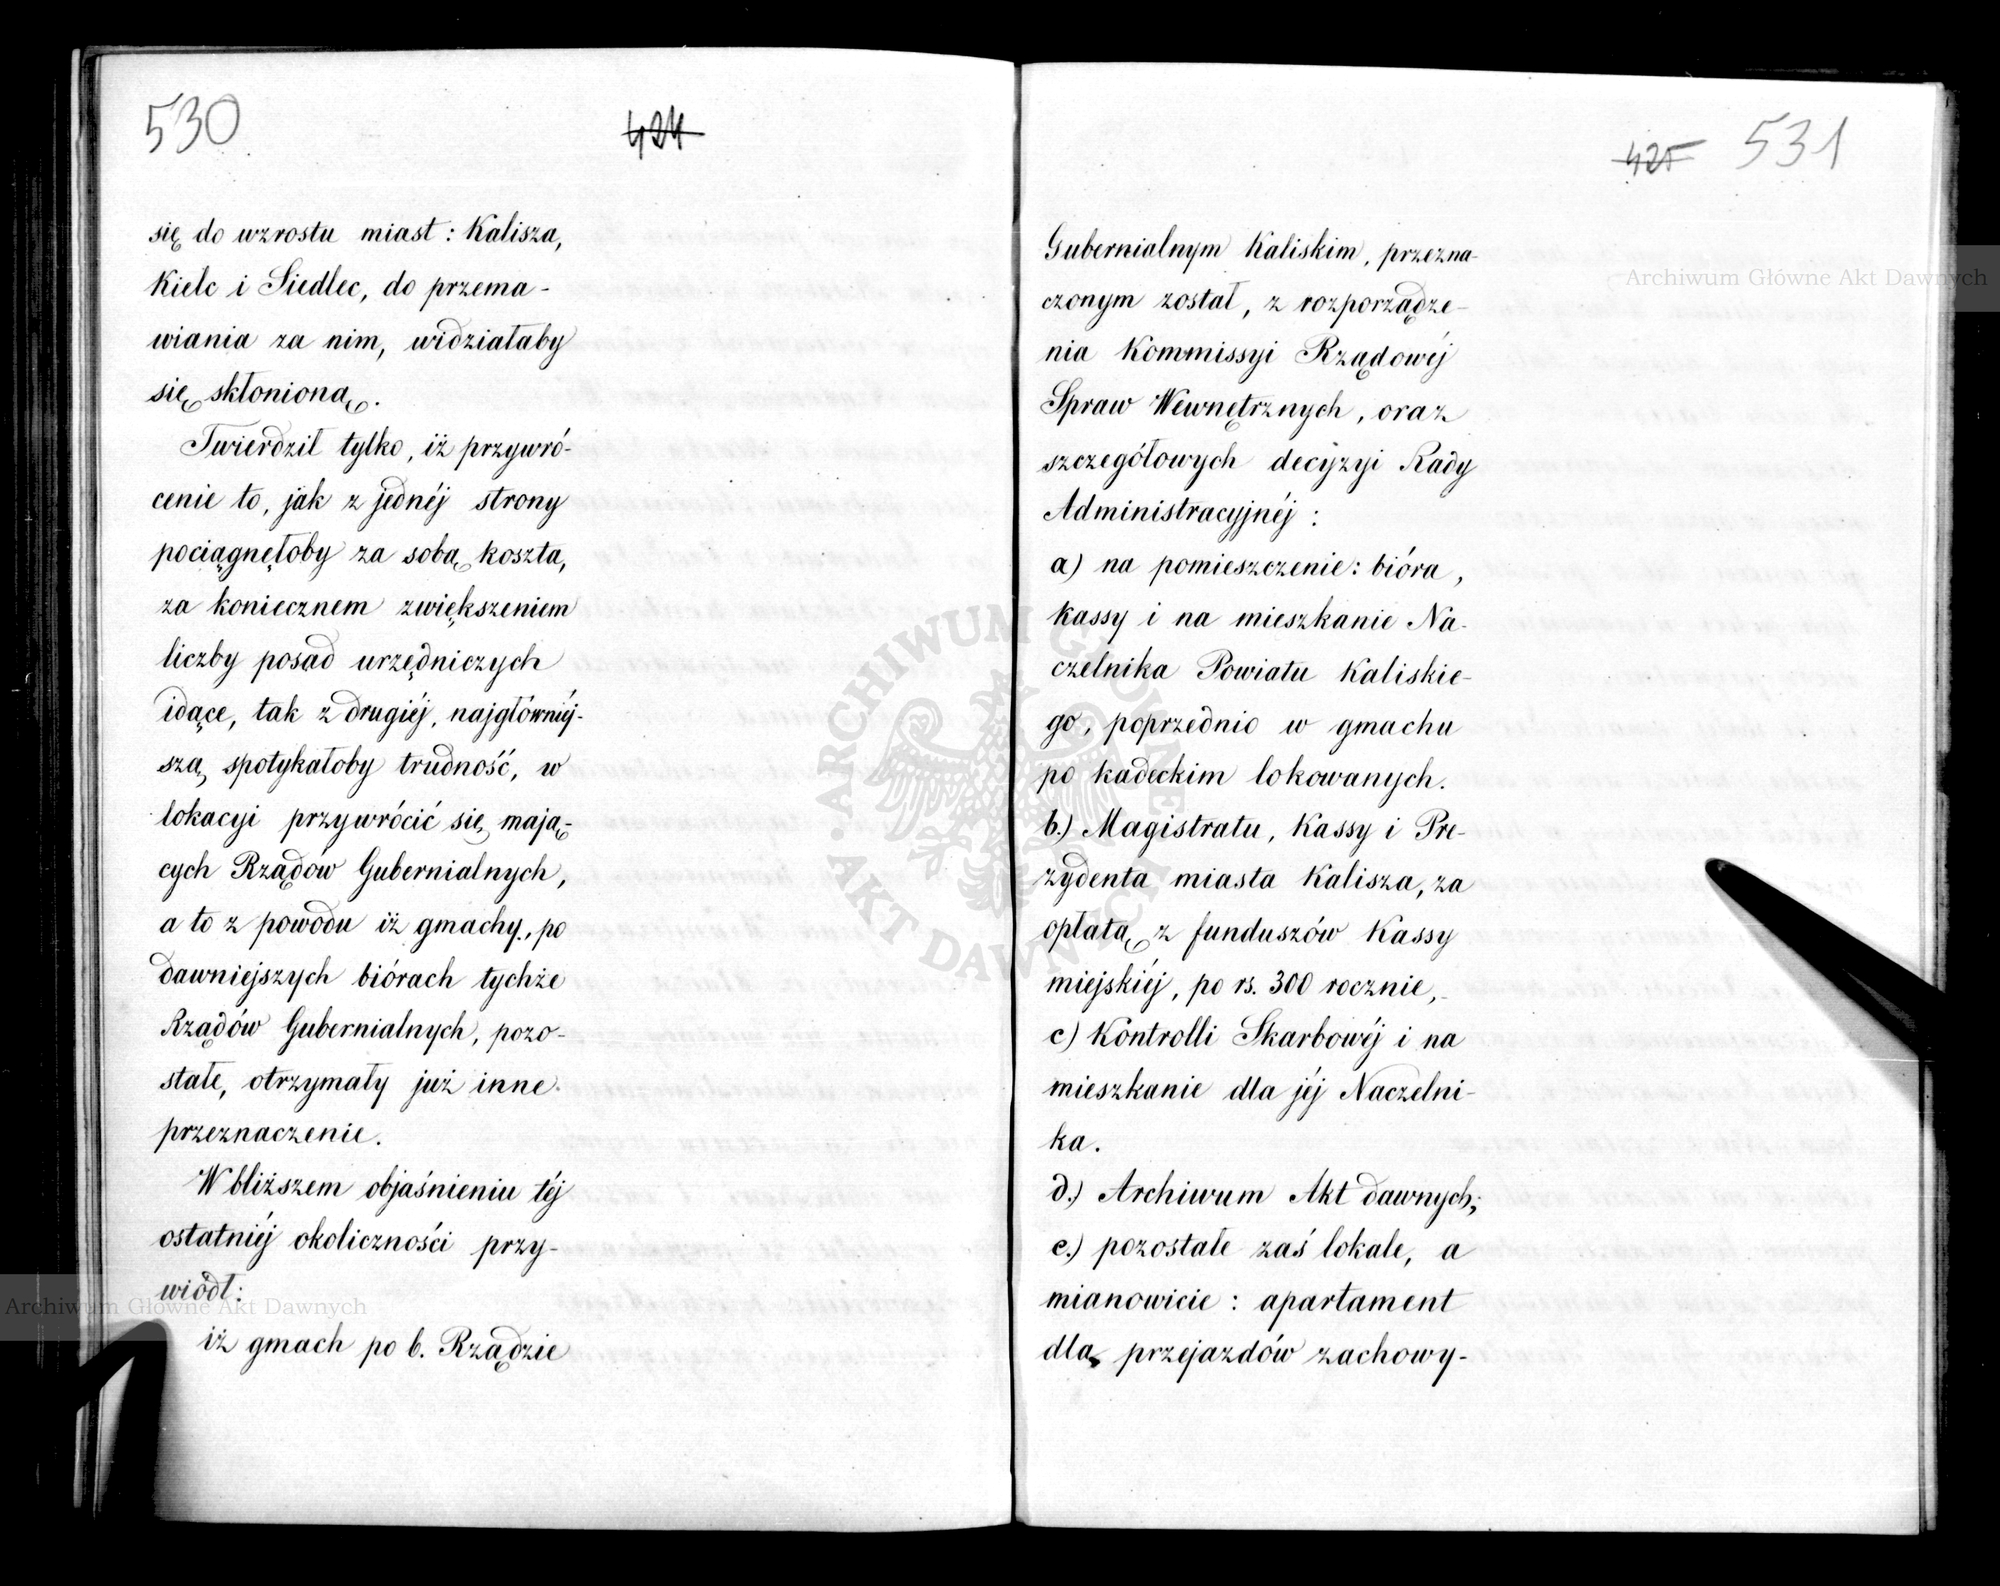 530
424
się do wzrostu miast: Kalisza,
Kielc i Siedlec, do przema-
wiania za nim, widziałaby
się skłonioną.
Twierdził tylko, iż przywró-
cenie to, jak z jednéj strony
pociągnęłoby za sobą koszta,
za koniecznem zwiększeniem
liczby posad urzędniczych
idące, tak z drugiéj, najgłówniéj-
szą spotykałoby trudność, w
lokacyi przywrócić się mają-
cych Rządów Gubernialnych,
a to z powodu iż gmachy, po
dawniejszych biórach tychże
Rządów Gubernialnych, pozo-
stałe, otrzymały już inne
przeznaczenie.
W bliższem objaśnieniu téj
ostatniéj okoliczności przy-
wiódł:
iż gmach po b. Rządzie
425 531
Gubernialnym Kaliskim, przezna-
czonym został, z rozporządze-
nia Kommissyi Rządowéj
Spraw Wewnętrznych, oraz
szczegółowych decyzyi Rady
Administracyjnéj:
a) na pomieszczenie: bióra,
kassy i na mieszkanie Na-
czelnika Powiatu Kaliskie-
go, poprzednio w gmachu
po kadeckim lokowanych.
b.) Magistratu, Kassy i Pre-
zydenta miasta Kalisza, za
opłatą z funduszów Kassy
miejskiéj, po rs. 300 rocznie,
c) Kontrolli Skarbowéj i na
mieszkanie dla jéj Naczelni-
ka.
d.) Archiwum Akt dawnych;
e.) pozostałe zaś lokale, a
mianowicie: apartament
dla przejazdów zachowy-
Archiwum Główne Akt Dawnych
Archiwum Główne Akt Dawnych
ARCHIWUM GŁÓWNE AKT DAWNYCH